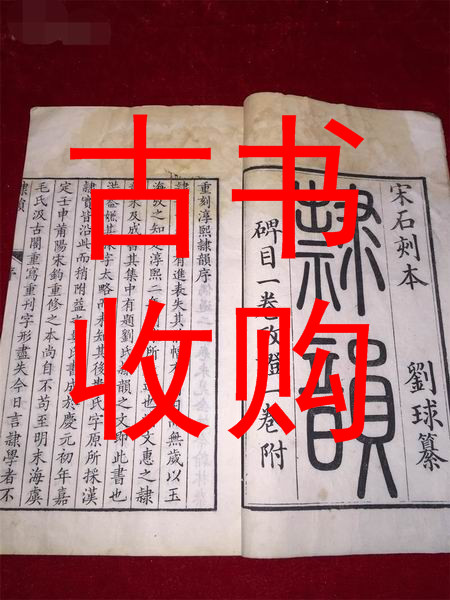 古书
收购
宋石刻本
隸韻
劉球纂
碑目一卷攷證一卷附
重刻淳熙隸韻序
有進表失其 而無歲以玉
海攷之知 淳熙二年 所 也 文惠之隸
及成 其集中有題劉氏隸韻之文 此書也
洪 嫌其 字太略而未知其後婁氏字原所採漢
隸實皆沿此而稍附益 婁氏書成於慶元初年嘉
定壬申莆陽宋鈞重修之本尚自不苟至明末海虞
毛氏汲古閣重寫重刊字形盡失今日言隸學者不
隸韻